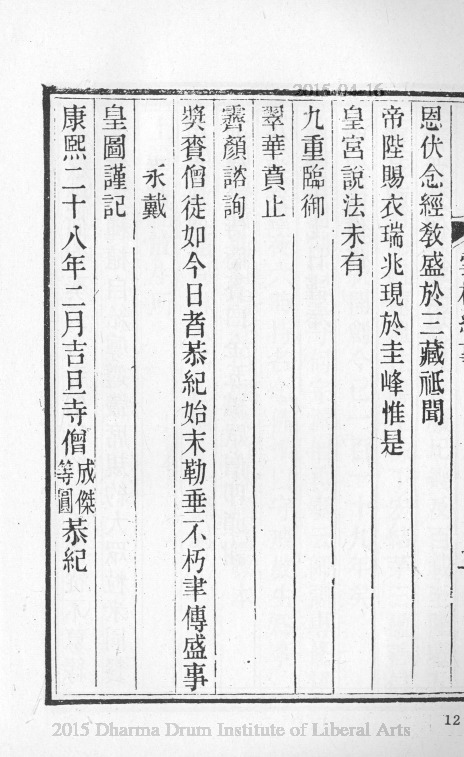 恩伏念經敎盛於三藏祗聞
帝陛賜衣瑞兆現於圭峰惟是
皇宮說法未有
九重臨御
翠華賁止
霽顏諮詢
奬賚僧徒如今日者恭紀始末勒垂不朽聿傳盛事
永戴
皇圖謹記
康熙二十八年二月吉旦寺僧成傑等圓恭紀
12
2015 Dharma Drum Institute of Liberal Arts
2015-04-16